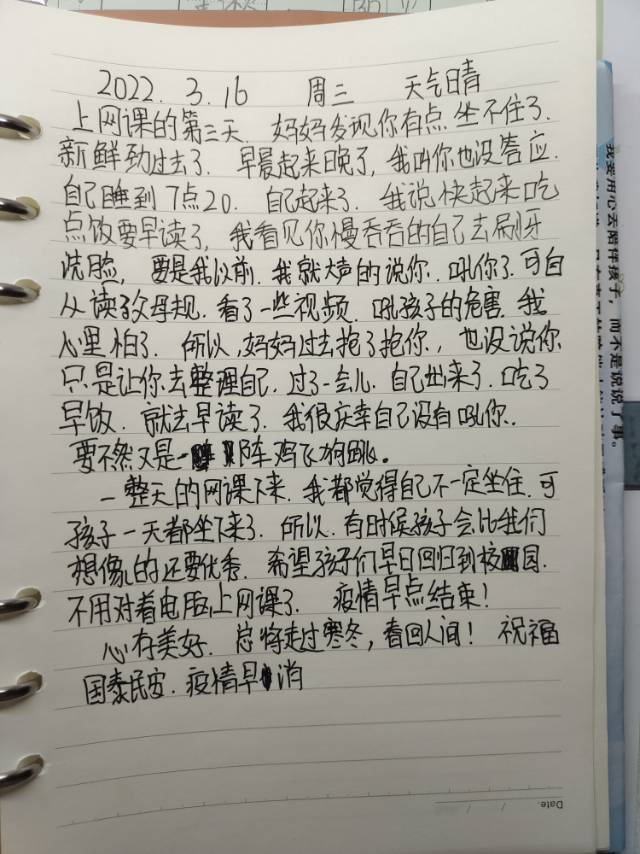 2022. 3. 16 周三 天气晴
上网课的第三天. 妈妈发现你有点坐不住了.
新鲜劲过去了. 早晨起来晚了, 我叫你也没答应.
自己睡到7点20. 自己起来了. 我说快起来吃
点饭要早读了, 我看见你慢吞吞的自己去刷牙
洗脸, 要是我以前. 我就大声的说你. 吼你了. 可自
从读了父母规. 看了一些视频. 吼孩子的危害. 我
心里怕了. 所以, 妈妈过去抱了抱你. 也没说你
只是让你去整理自己. 过了一会儿. 自己出来了. 吃了
早饭. 就去早读了. 我很庆幸自己没有吼你.
要不然又是一阵鸡飞狗跳。
一整天的网课下来. 我都觉得自己不一定坐住. 可
孩子一天都坐下来了. 所以. 有时候孩子会比我们
想像的还要优秀. 希望孩子们早日回归到校园.
不用对着电脑上网课了. 疫情早点结束!
心存美好. 总将走过寒冬, 春回人间! 祝福
国泰民安. 疫情早消
Date.
我要用心去陪伴孩子, 而不是说说了事。